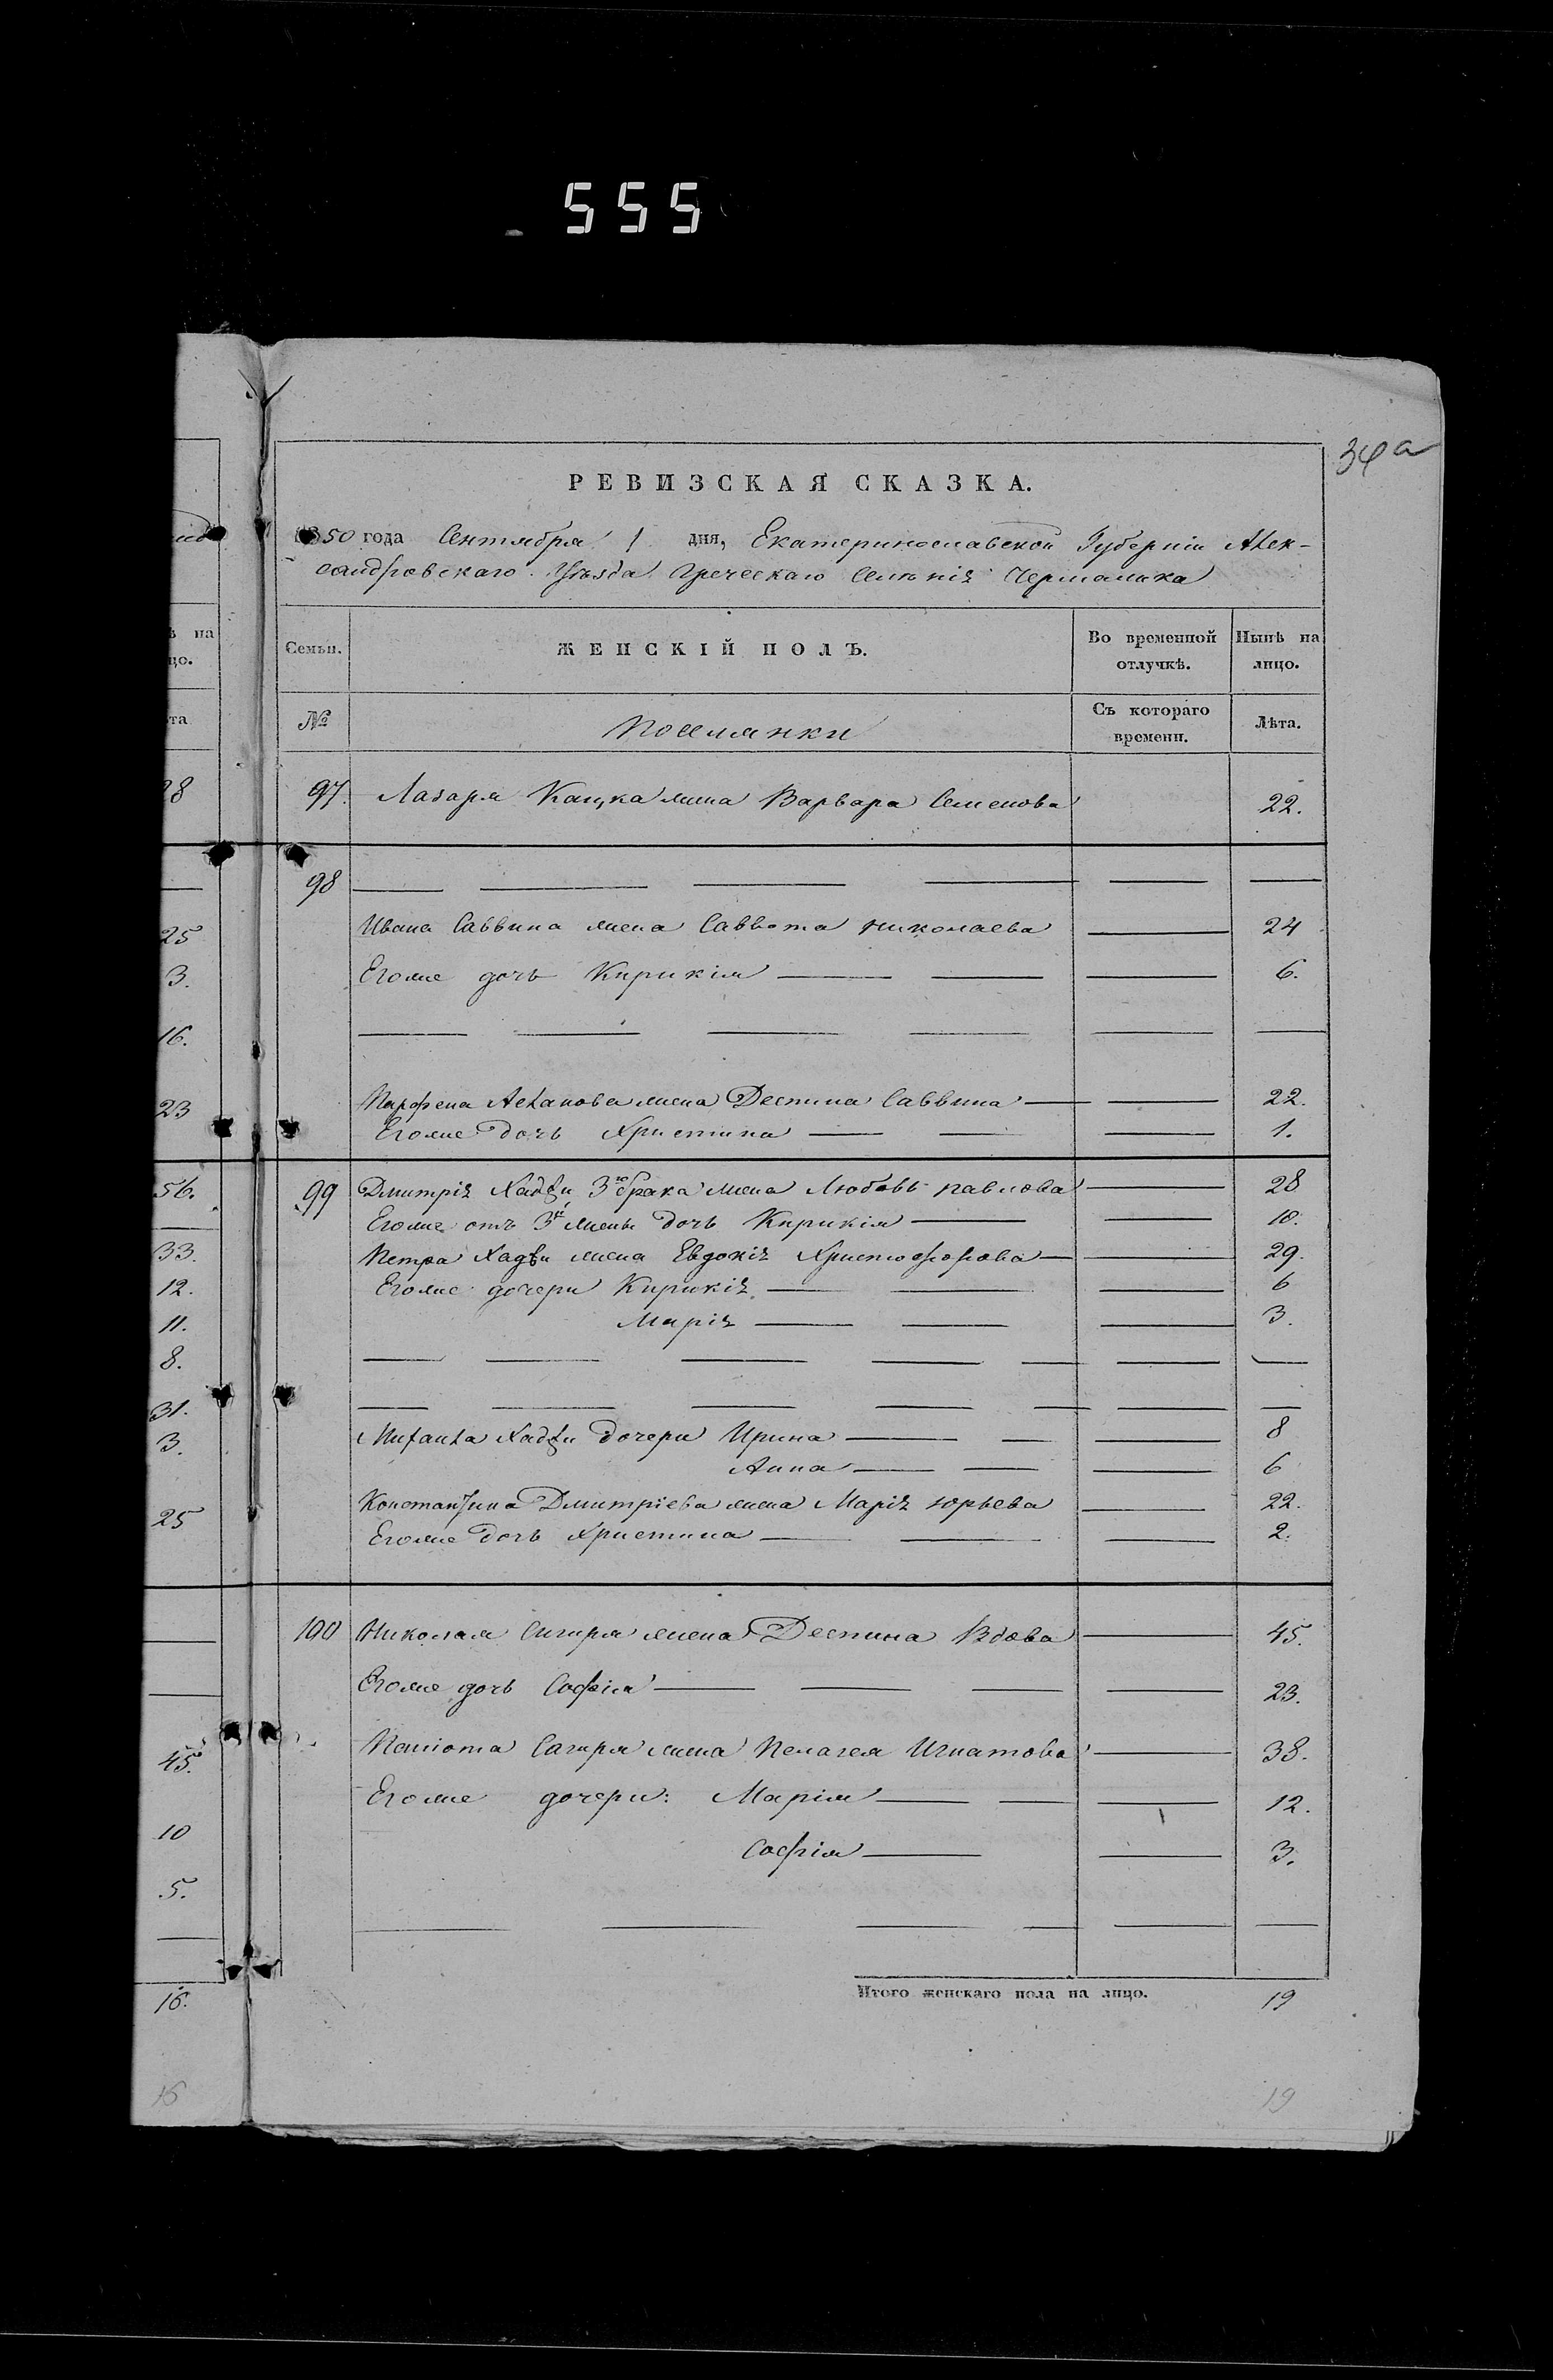 555
34а
РЕВИЗСКАЯ СКАЗКА.
1850 года Сентября 1 дня, Екатеринославской Губерніи Алек-
сандровскаго Уѣзда Греческаго Селенія Чермалыка
Семьи. ЖЕНСКІЙ ПОЛЪ. Во временной отлучкѣ. Нынѣ на лицо.
№ Поселянки Съ котораго времени. Лѣта.
97. Лазаря Кацка жена Варвара Семенова 22.
98
Ивана Саввина жена Саввота Николаева 24
Егоже дочь Кирикія 6.
Парфена Асланова жена Деспина Саввина 22.
Егоже дочь Христина 1.
99 Дмитрія Хаджи 3го брака жена Любовь Павлова 28
Егоже отъ 3й жены дочь Кирикія 10.
Петра Хаджи жена Евдокія Христофорова 29.
Егоже дочери Кирикія 6
Марія 3.
Михаила Хаджи дочери Ирина 8
Анна 6
Константина Дмитріева жена Марія Юрьева 22.
Егоже дочь Христина 2.
100 Николая Сагиря жена Деспина Вдова 45.
Егоже дочь Софія 23.
Паніота Сагиря жена Пелагея Игнатова 38.
Егоже дочери: Марія 12.
Софія 3.
Итого женскаго пола на лицо. 19
19
ѣ на
цо.
та
28
25
3.
16.
23
56.
33.
12.
11.
8.
31.
3.
25
45.
10
5.
16.
16